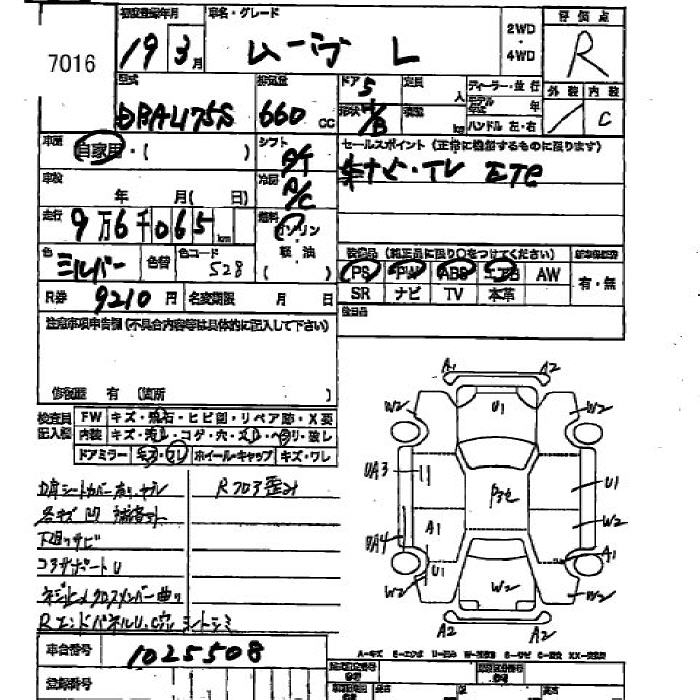 7016
初度登録年月 車名・グレード 2WD・4WD 評価点
19 3月 ムーヴ L R
型式 排気量 ドア 5 定員 人 ディーラー・並行 外装 内装
DBAL175S 660cc 形状 H/B 積載 kg モデル年式 年 ハンドル 左・右 C
車歴 自家用・( ) シフト AT セールスポイント (正常に機能するものに限ります)
ナビ・TV ETC
車検 年 月( 日) 冷房 A/C
走行 9万6千065km 燃料 ガソリン 軽油 ( )
装備品 (純正品に限り○をつけてください) 新車保証書
色 シルバー 色替 色コード S28
PS PW ABS エアB AW 有・無
SR ナビ TV 本革
R券 9210円 名変期限 月 日
後日品
注意事項申告欄(不具合内容等は具体的に記入して下さい)
修復歴 有 (箇所 )
検査員記入欄 FW キズ・飛石・ヒビ割・リペア跡・X要
内装 キズ・汚れ・コゲ・穴・スレ・ヘタリ・破レ
ドアミラー キズ・ワレ ホイール・キャップ キズ・ワレ
内装シートカバー有り、ヤブレ Rフロア歪み
各キズ凹
下廻りサビ
コアサポートU
ネジ止めクロスメンバー曲り
RエンドパネルU.C穴
A1 A2
W2 U1 W2
UA3 U1
A1 W2
UA4 A1
U1
W2 W2 W2
A2 A2
A=キズ E=エクボ U=凹み W=波 S=サビ C=腐食 XX=交換済
車台番号 1025508
登録番号